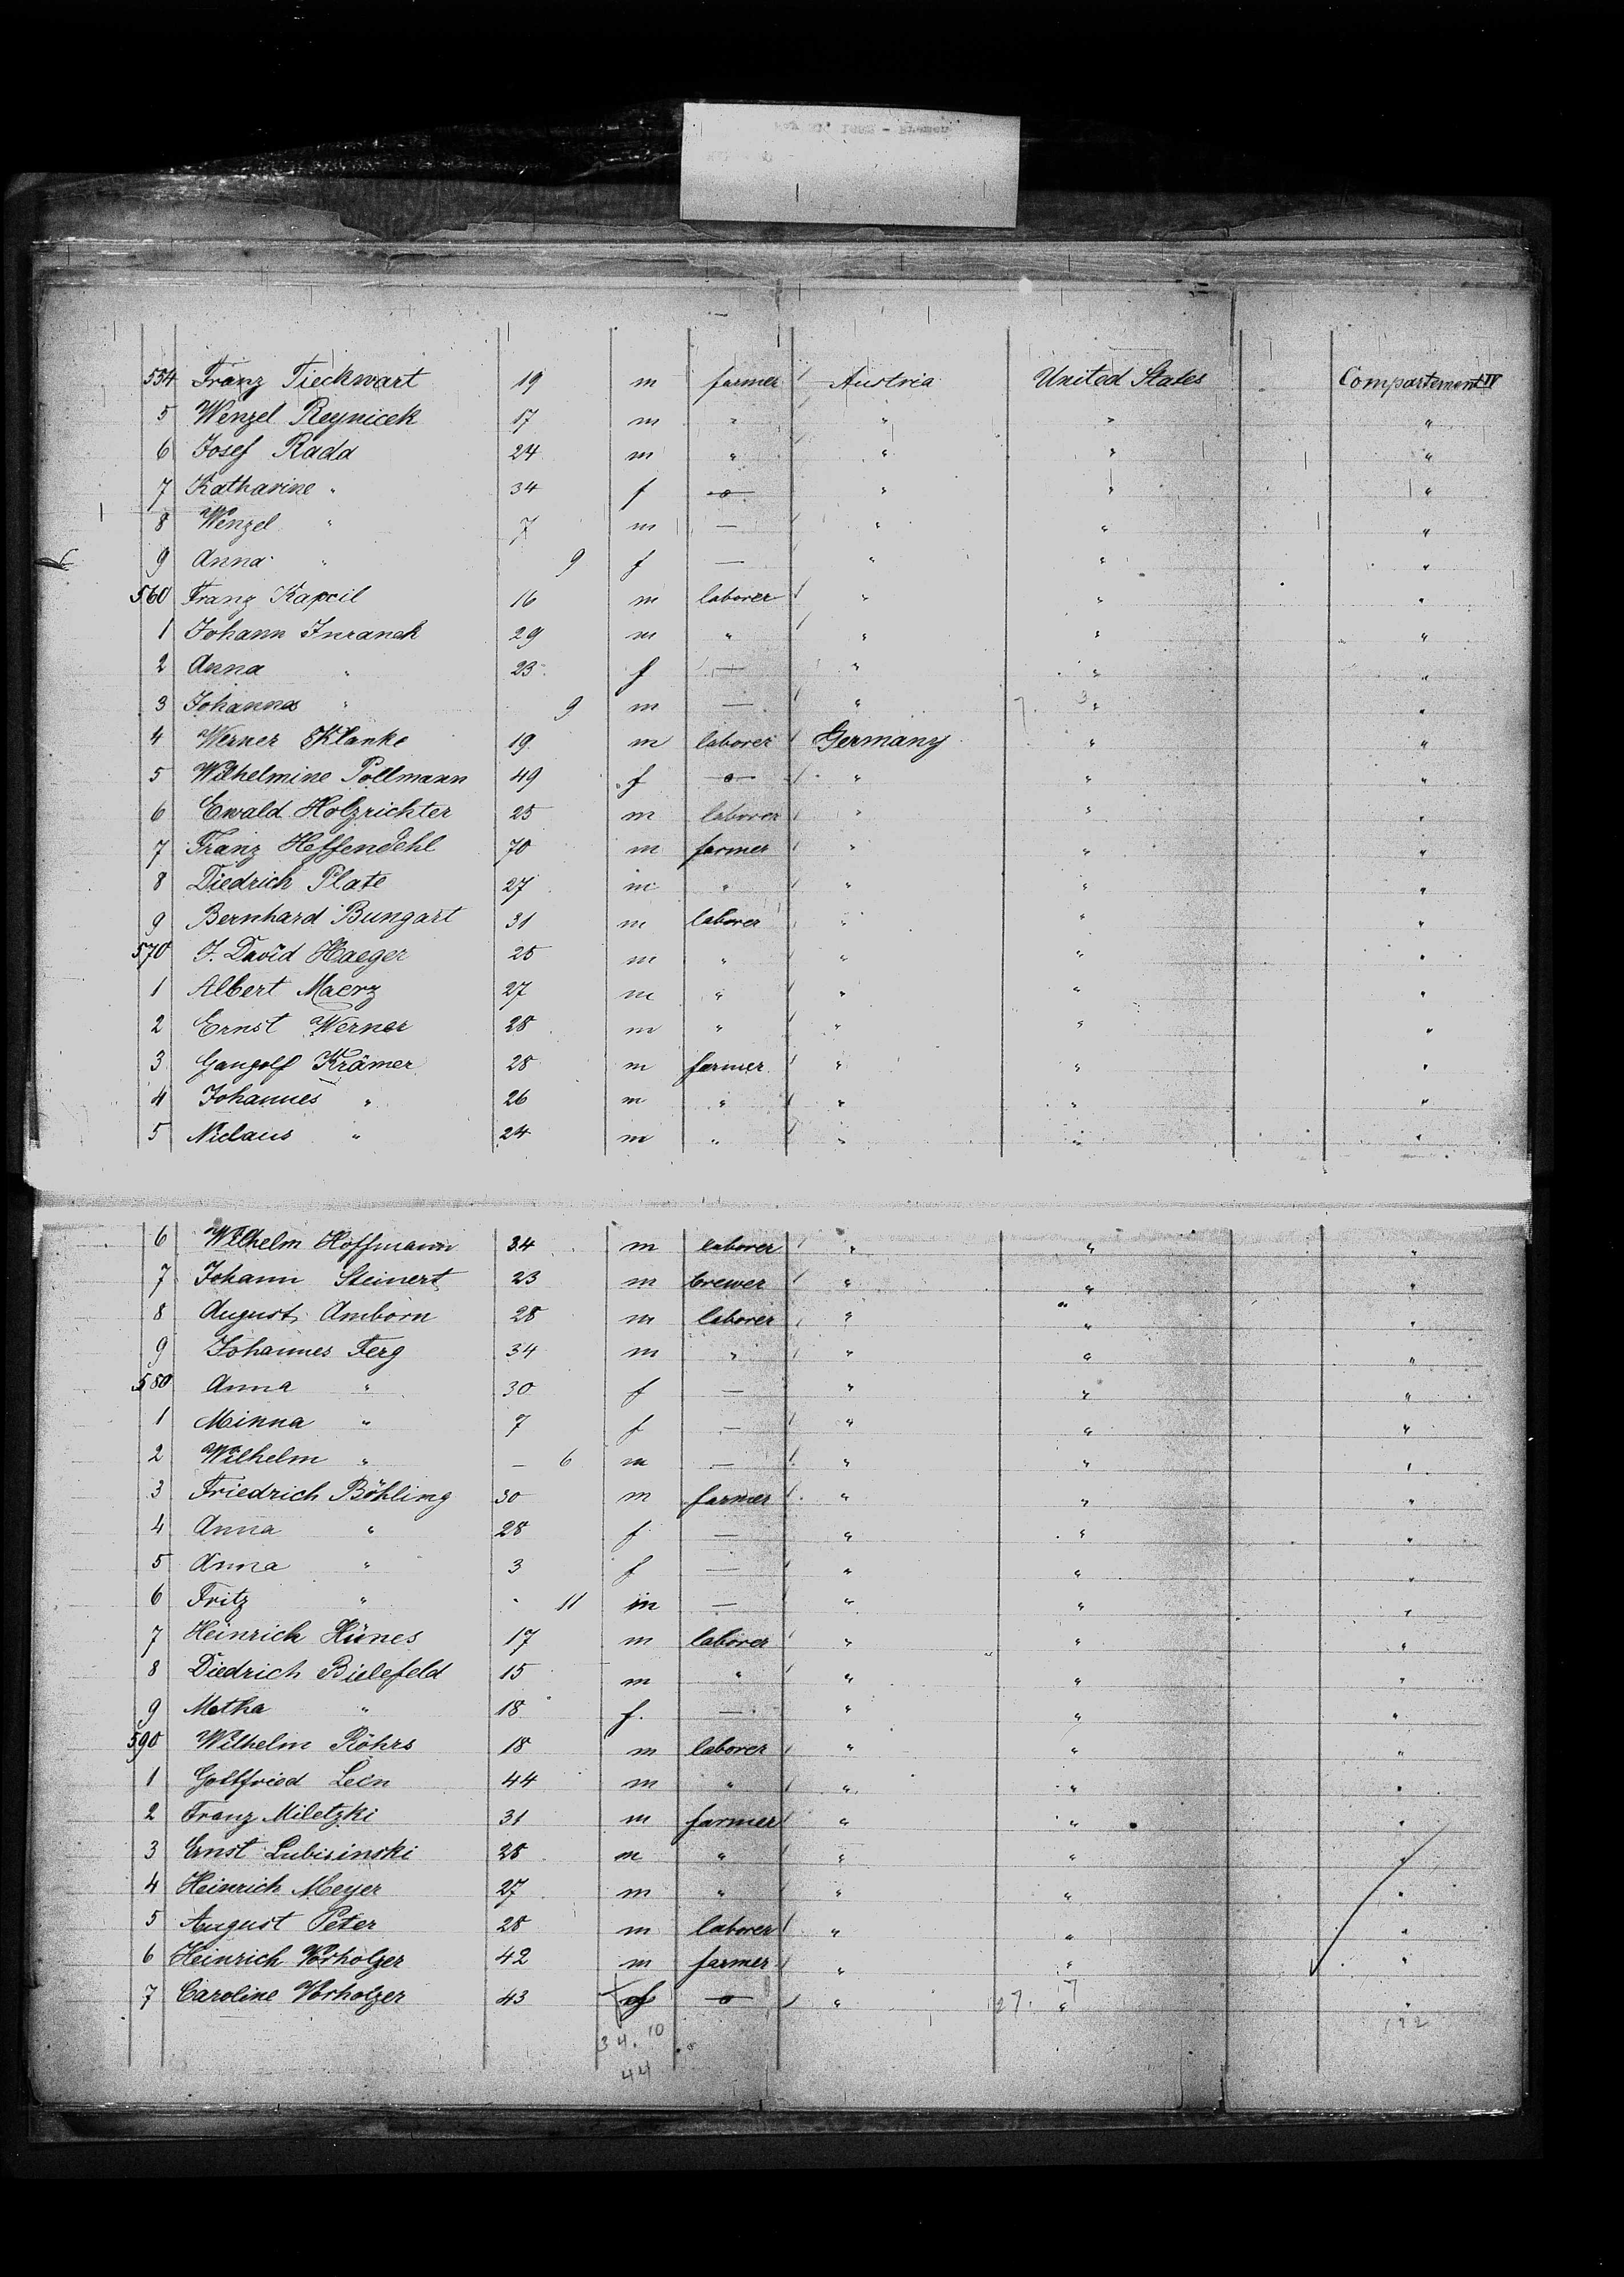 554 Franz Tieckwart 19 m farmer Austria United States Compartement IV
5 Wenzel Reynicek 17 m " " " "
6 Josef Rada 24 m " " " "
7 Katharine " 34 f o " " "
8 Wenzel " 7 m — " " "
9 Anna " 9 f — " " "
560 Franz Kapcil 16 m laborer " " "
1 Johann Juranek 29 m " " " "
2 Anna " 23 f — " " "
3 Johannes " 9 m — " " "
4 Werner Klanke 19 m laborer Germany " "
5 Wilhelmine Pollmann 49 f o " " "
6 Ewald Holzrichter 25 m laborer " " "
7 Franz Heffendehl 70 m farmer " " "
8 Diedrich Plate 27 m " " " "
9 Bernhard Bungart 31 m laborer " " "
570 J. David Haeger 25 m " " " "
1 Albert Maerz 27 m " " " "
2 Ernst Werner 28 m " " " "
3 Gangolf Krämer 28 m farmer " " "
4 Johannes " 26 m " " " "
5 Niclaus " 24 m " " " "
6 Wilhelm Hoffmann 34 m laborer " " "
7 Johann Steinert 23 m brewer " " "
8 August Amborn 28 m laborer " " "
9 Johannes Ferg 34 m " " " "
580 Anna " 30 f — " " "
1 Minna " 7 f — " " "
2 Wilhelm " — 6 m — " " "
3 Friedrich Böhling 30 m farmer " " "
4 Anna " 28 f — " " "
5 Anna " 3 f — " " "
6 Fritz " 11 m — " " "
7 Heinrich Hünes 17 m laborer " " "
8 Diedrich Bielefeld 15 m " " " "
9 Metha " 18 f. — " " "
590 Wilhelm Röhrs 18 m laborer " " "
1 Gottfried Lein 44 m " " " "
2 Franz Miletzki 31 m farmer " " "
3 Ernst Lubisinski 28 m " " " "
4 Heinrich Meyer 27 m " " " "
5 August Peter 28 m laborer " " "
6 Heinrich Vorholzer 42 m farmer " " "
7 Caroline Vorholzer 43 f o " " "
34. 10
44